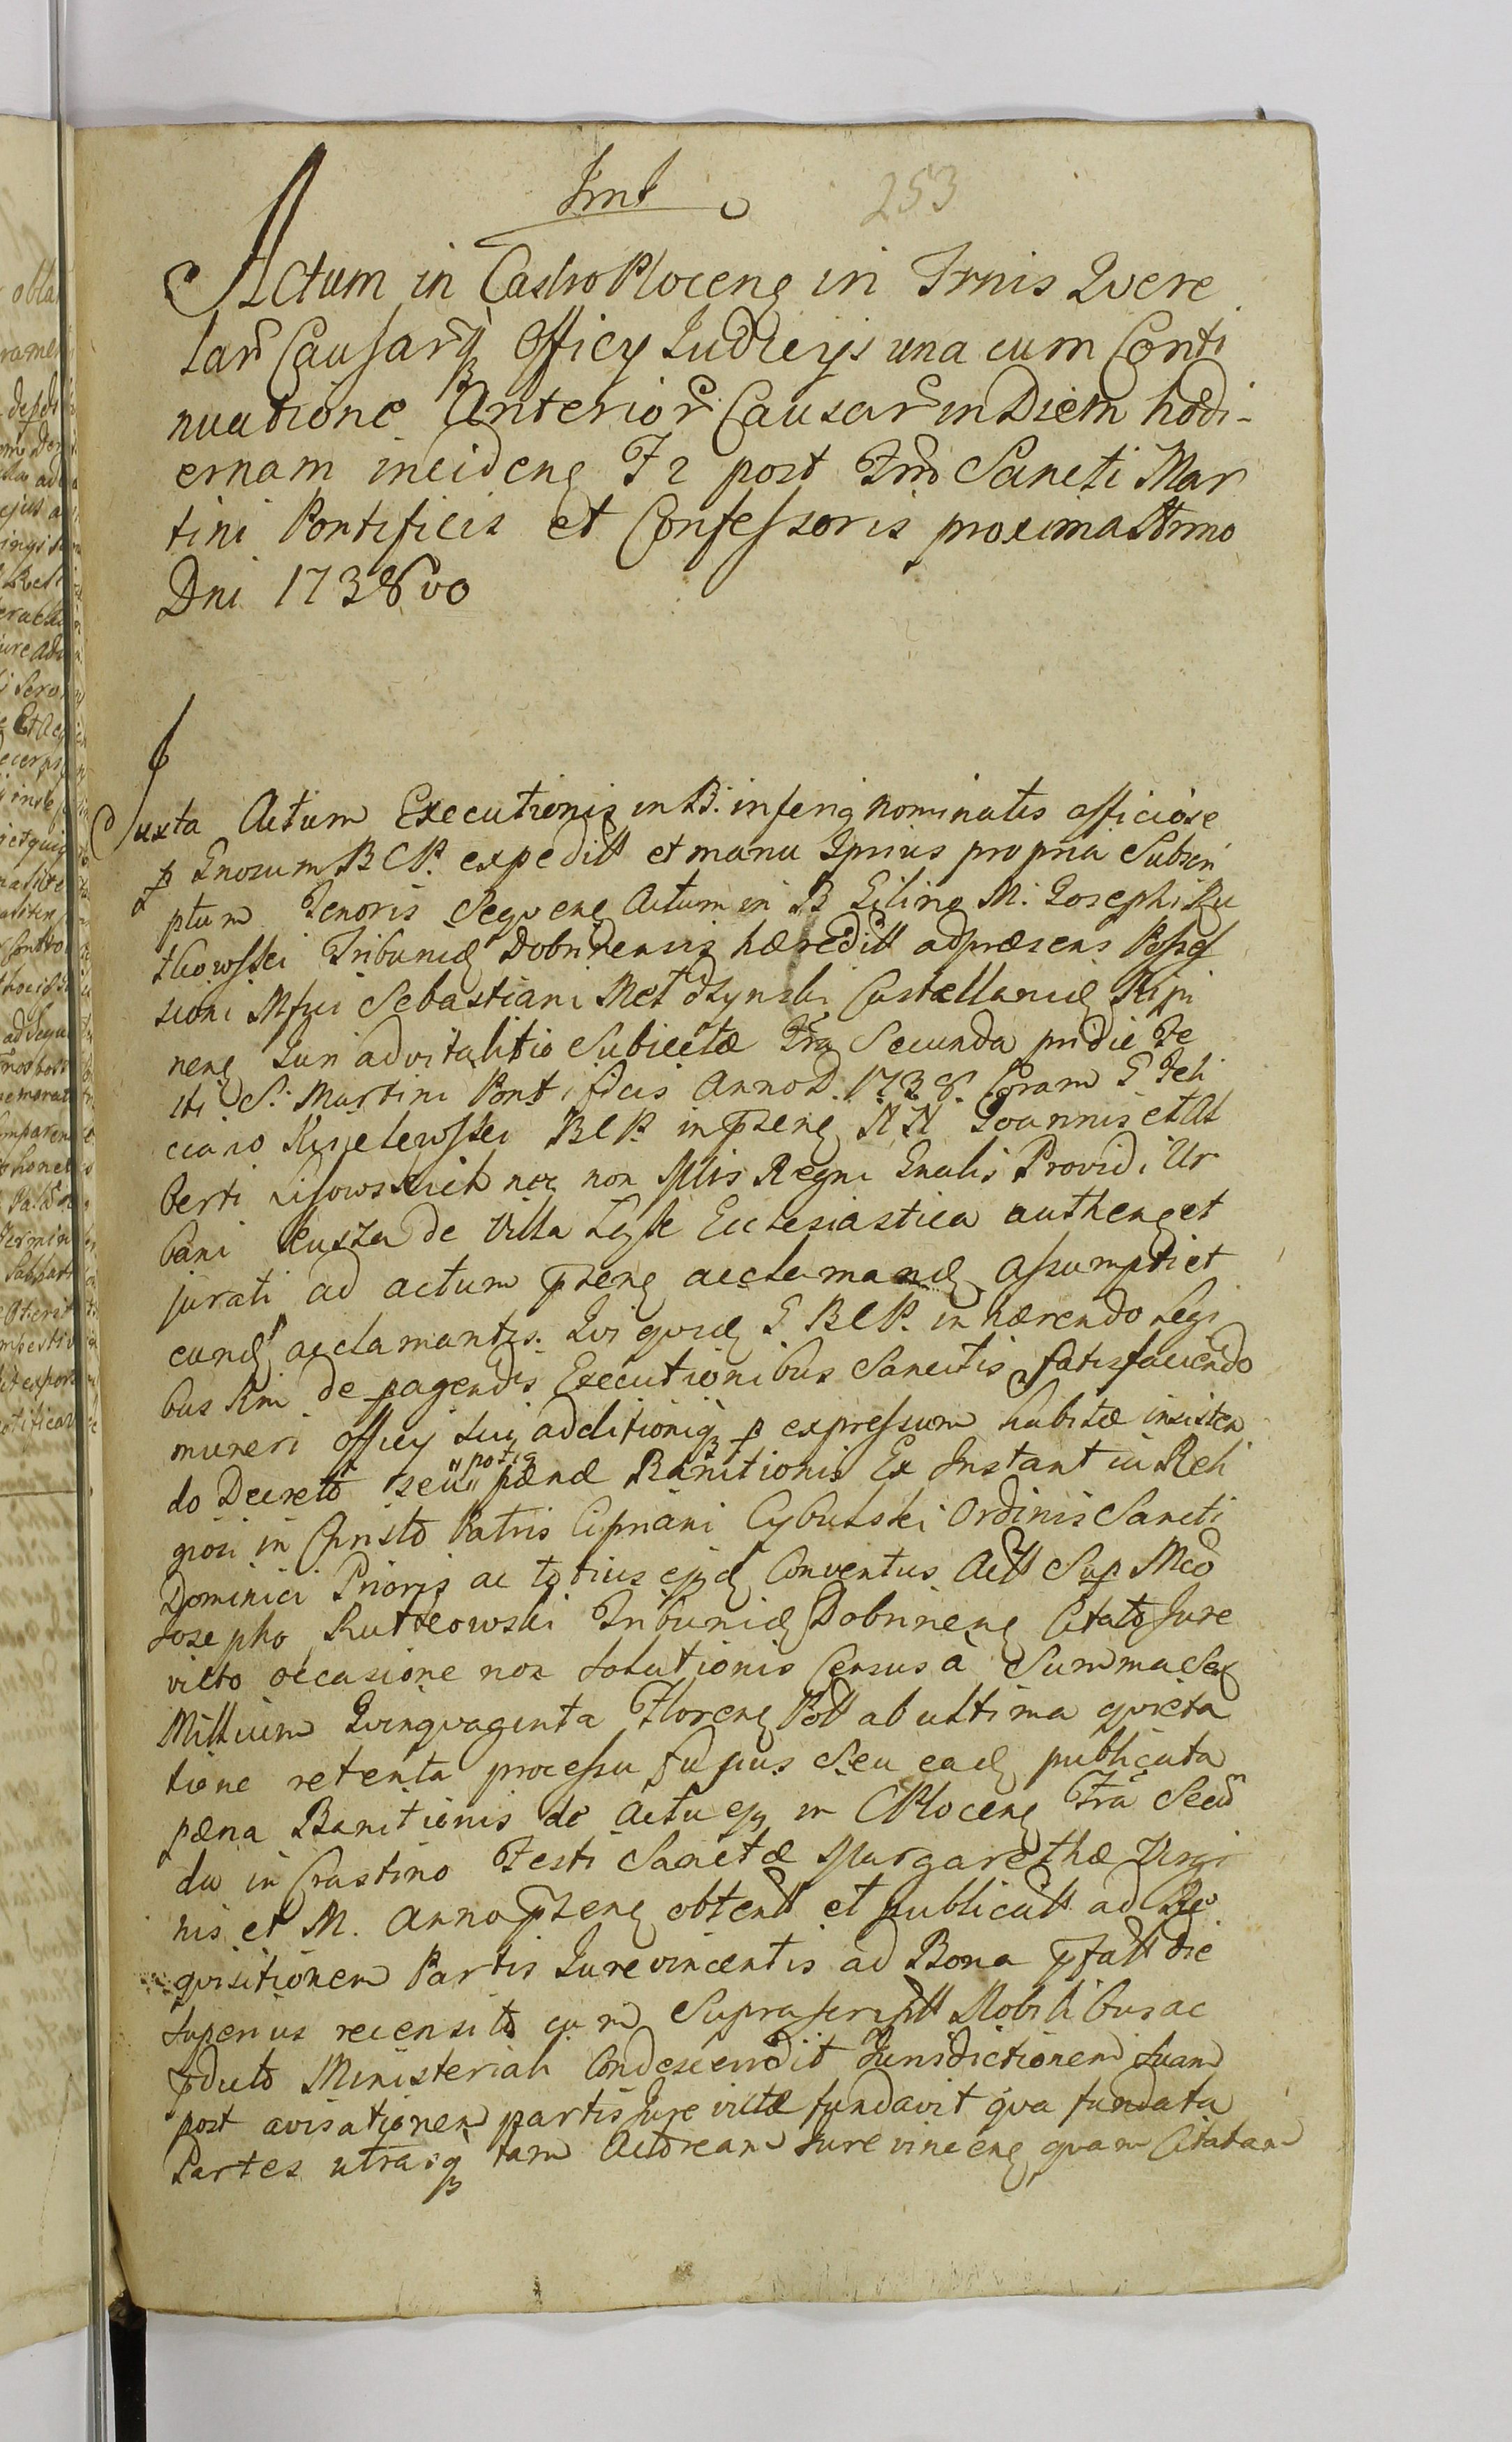 Trnt
253
Actum in Castro Plocen in Trnis Qvere
lar Causarq Officy Iudicys una cum Conti
nuatione Anterior Causar in Diem hodi-
ernam inciden F 2 post Frm Sancti Mar
tini Pontificis et Confessoris proxima Anno
Dni 1738vo
Juxta Actum Executionis in B. inferiq nominatis officiose
p Gnosum BCP. expeditt et manu Ipsius propria Subscri
ptum Tenoris Seqven Actum in B Giling M. Josephi Ru
tkowski Tribunid Dobrinensis hæreditt ad præsens Posses
sioni Mfci Sebastiani Castellanid Ripi
nen Juri advitalitio Subiectæ Fra Secunda pridie Fe
sti S. Martini Pontificis Anno D. 1738. Coram G Feli
ciano BCP. in pzen NN Joannis et Al
berti Lisowskich nec non Mlis Regni Gnalis Providi Ur
bani de Villa Ecclesiastica authen et
jurati ad actum pzen acclamand assumpti et
eund acclamantis. Qvi qvid G BCP. in hærendo Legi
bus Rni de pagendis Executionibus Sancitis Satisfaciendo
muneri officy sui additioniq p expressum habitæ insisten
do Decreto seu "potiq" pænæ Banitionis Ex Instantia Reli
giosi in Christo Patris Cipriani Cybulski Ordinis Sancti
Dominici Prioris ac totius ejqd Conventus Actt Sup Mco
Josepho Rutkowski Tribunid Dobrinen Citato Jure
victo occasione non solutionis Census à Summa Sex
Millium Qvinqvaginta Floren Poll ab ultima qvieta
tione retenta processu fusius Seu ead publicata
pæna Banitionis de Actu ejq in CPlocen Fra Secu
da in Crastino Festi Sanctæ Margarethæ Virgi
nis et M. Anno pzen obtentt et publicatt ad Re
qvisitionem Partis Jurevincentis ad Bona pfatt die
superius recensito cum Suprascriptt Nobilibus ac
pducto Ministeriali Condescendit Jurisdictionem suam
post avisationem partis Jure victæ fundavit qva fundata
Partes utrasq tam Actoream Jure vincen qvam Citatam